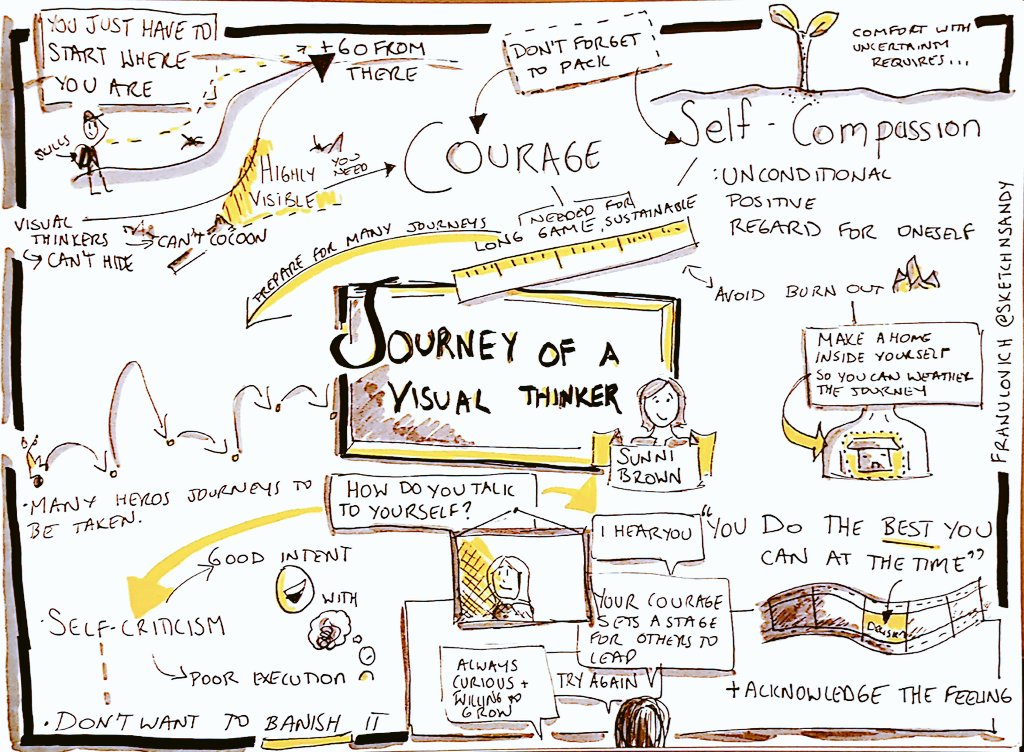 YOU JUST HAVE TO
START WHERE
YOU ARE
+ GO FROM
THERE
DON'T FORGET
TO PACK
COMFORT WITH
UNCERTAINTY
REQUIRES...
SKILLS
COURAGE
SELF-COMPASSION
: UNCONDITIONAL
POSITIVE
REGARD FOR ONESELF
HIGHLY
VISIBLE
YOU
NEED
VISUAL
THINKERS
→ CAN'T COCOON
↳ CAN'T HIDE
PREPARE FOR MANY JOURNEYS
NEEDED FOR
LONG GAME, SUSTAINABLE
AVOID BURN OUT
MAKE A HOME
INSIDE YOURSELF
SO YOU CAN WEATHER
THE JOURNEY
FRANULOVICH @SKETCHNSANDY
JOURNEY OF A
VISUAL THINKER
SUNNI
BROWN
• MANY HEROS JOURNEYS TO
BE TAKEN.
HOW DO YOU TALK
TO YOURSELF?
GOOD INTENT
WITH
• SELF-CRITICISM
POOR EXECUTION
• DON'T WANT TO BANISH IT
I HEAR YOU
"YOU DO THE BEST YOU
CAN AT THE TIME"
YOUR COURAGE
SETS A STAGE
FOR OTHERS TO
LEAP
ALWAYS
CURIOUS +
WILLING TO
GROW
TRY AGAIN
+ ACKNOWLEDGE THE FEELING